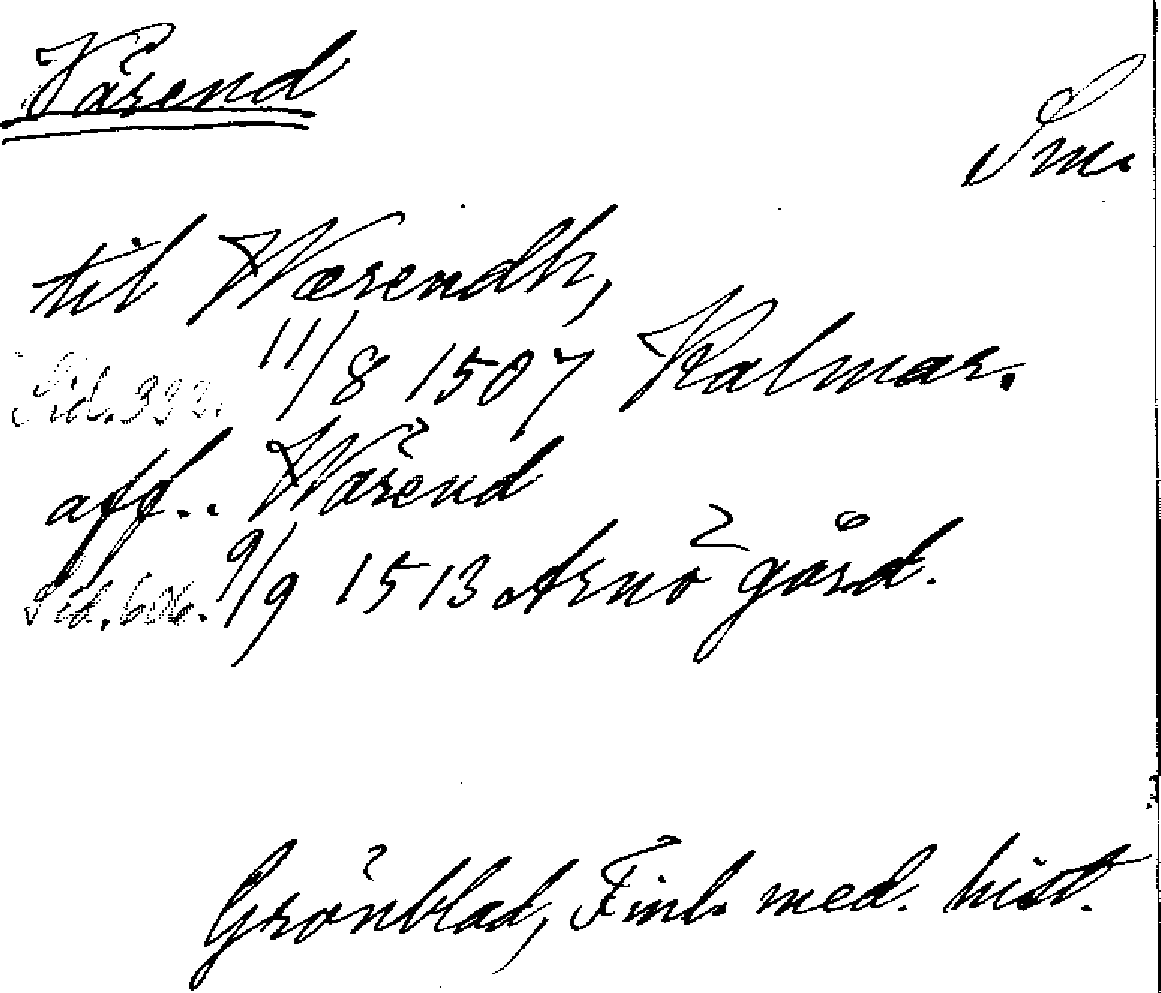 Värend
Sm.
til Wærendh,
Sid. 332. 11/8 1507 Kalmar.
aff.. Wärend
Sid. 606. 9/9 1513 Arnö gård.
Grönblad, Finl. med. hist.